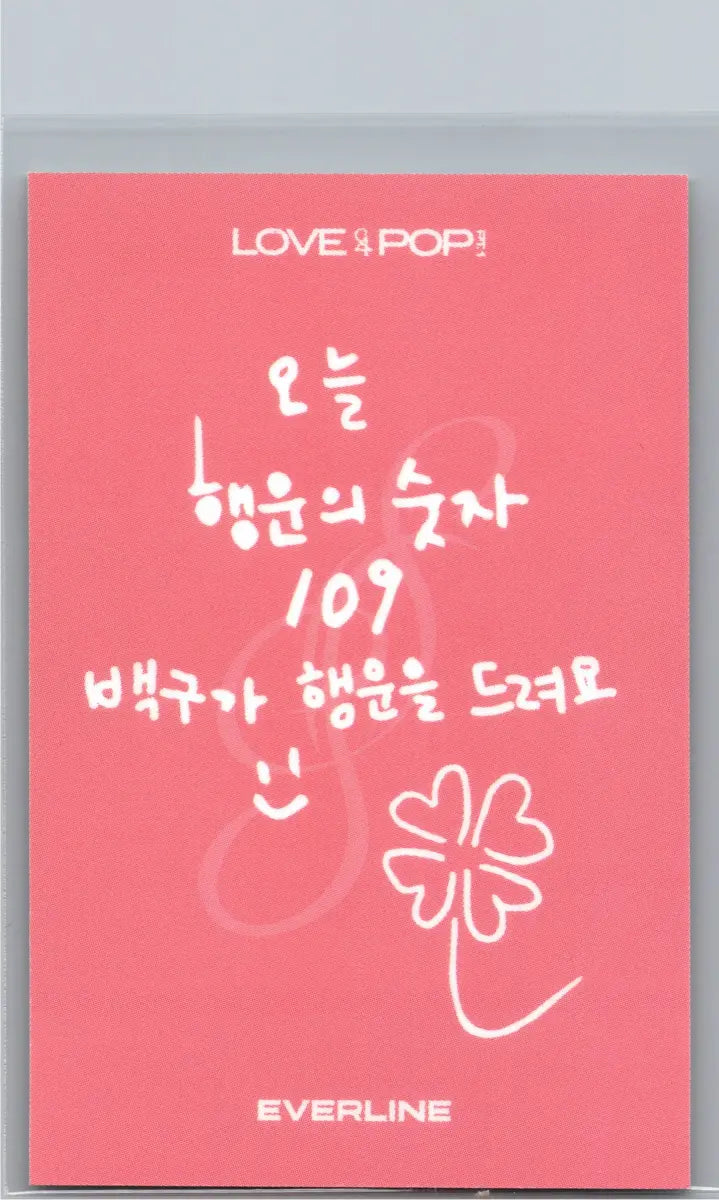 LOVE & POP PT.1
오늘
행운의 숫자
109
백구가 행운을 드려요
EVERLINE